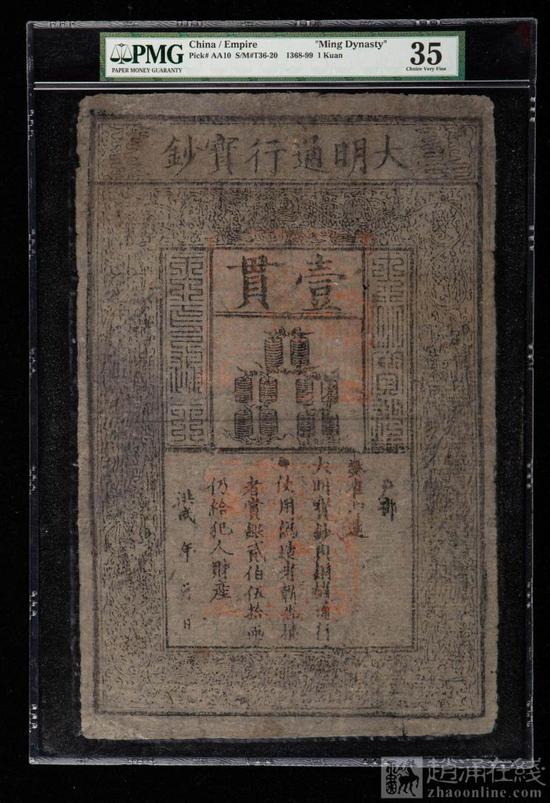 PMG
PAPER MONEY GUARANTY
China / Empire "Ming Dynasty"
Pick# AA10 S/M#T36-20 1368-99 1 Kuan
35
Choice Very Fine
大明通行寶鈔
壹貫
户部
奏准印造
大明寶鈔與銅錢通行
使用偽造者斬告捕
者賞銀貳伯伍拾兩
仍給犯人財產
洪武 年 月 日
趙涌在線
zhaoonline.com